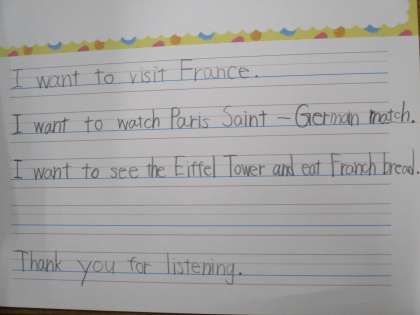 I want to visit France.
I want to watch Paris Saint-German match.
I want to see the Eiffel Tower and eat Franch bread.
Thank you for listening.